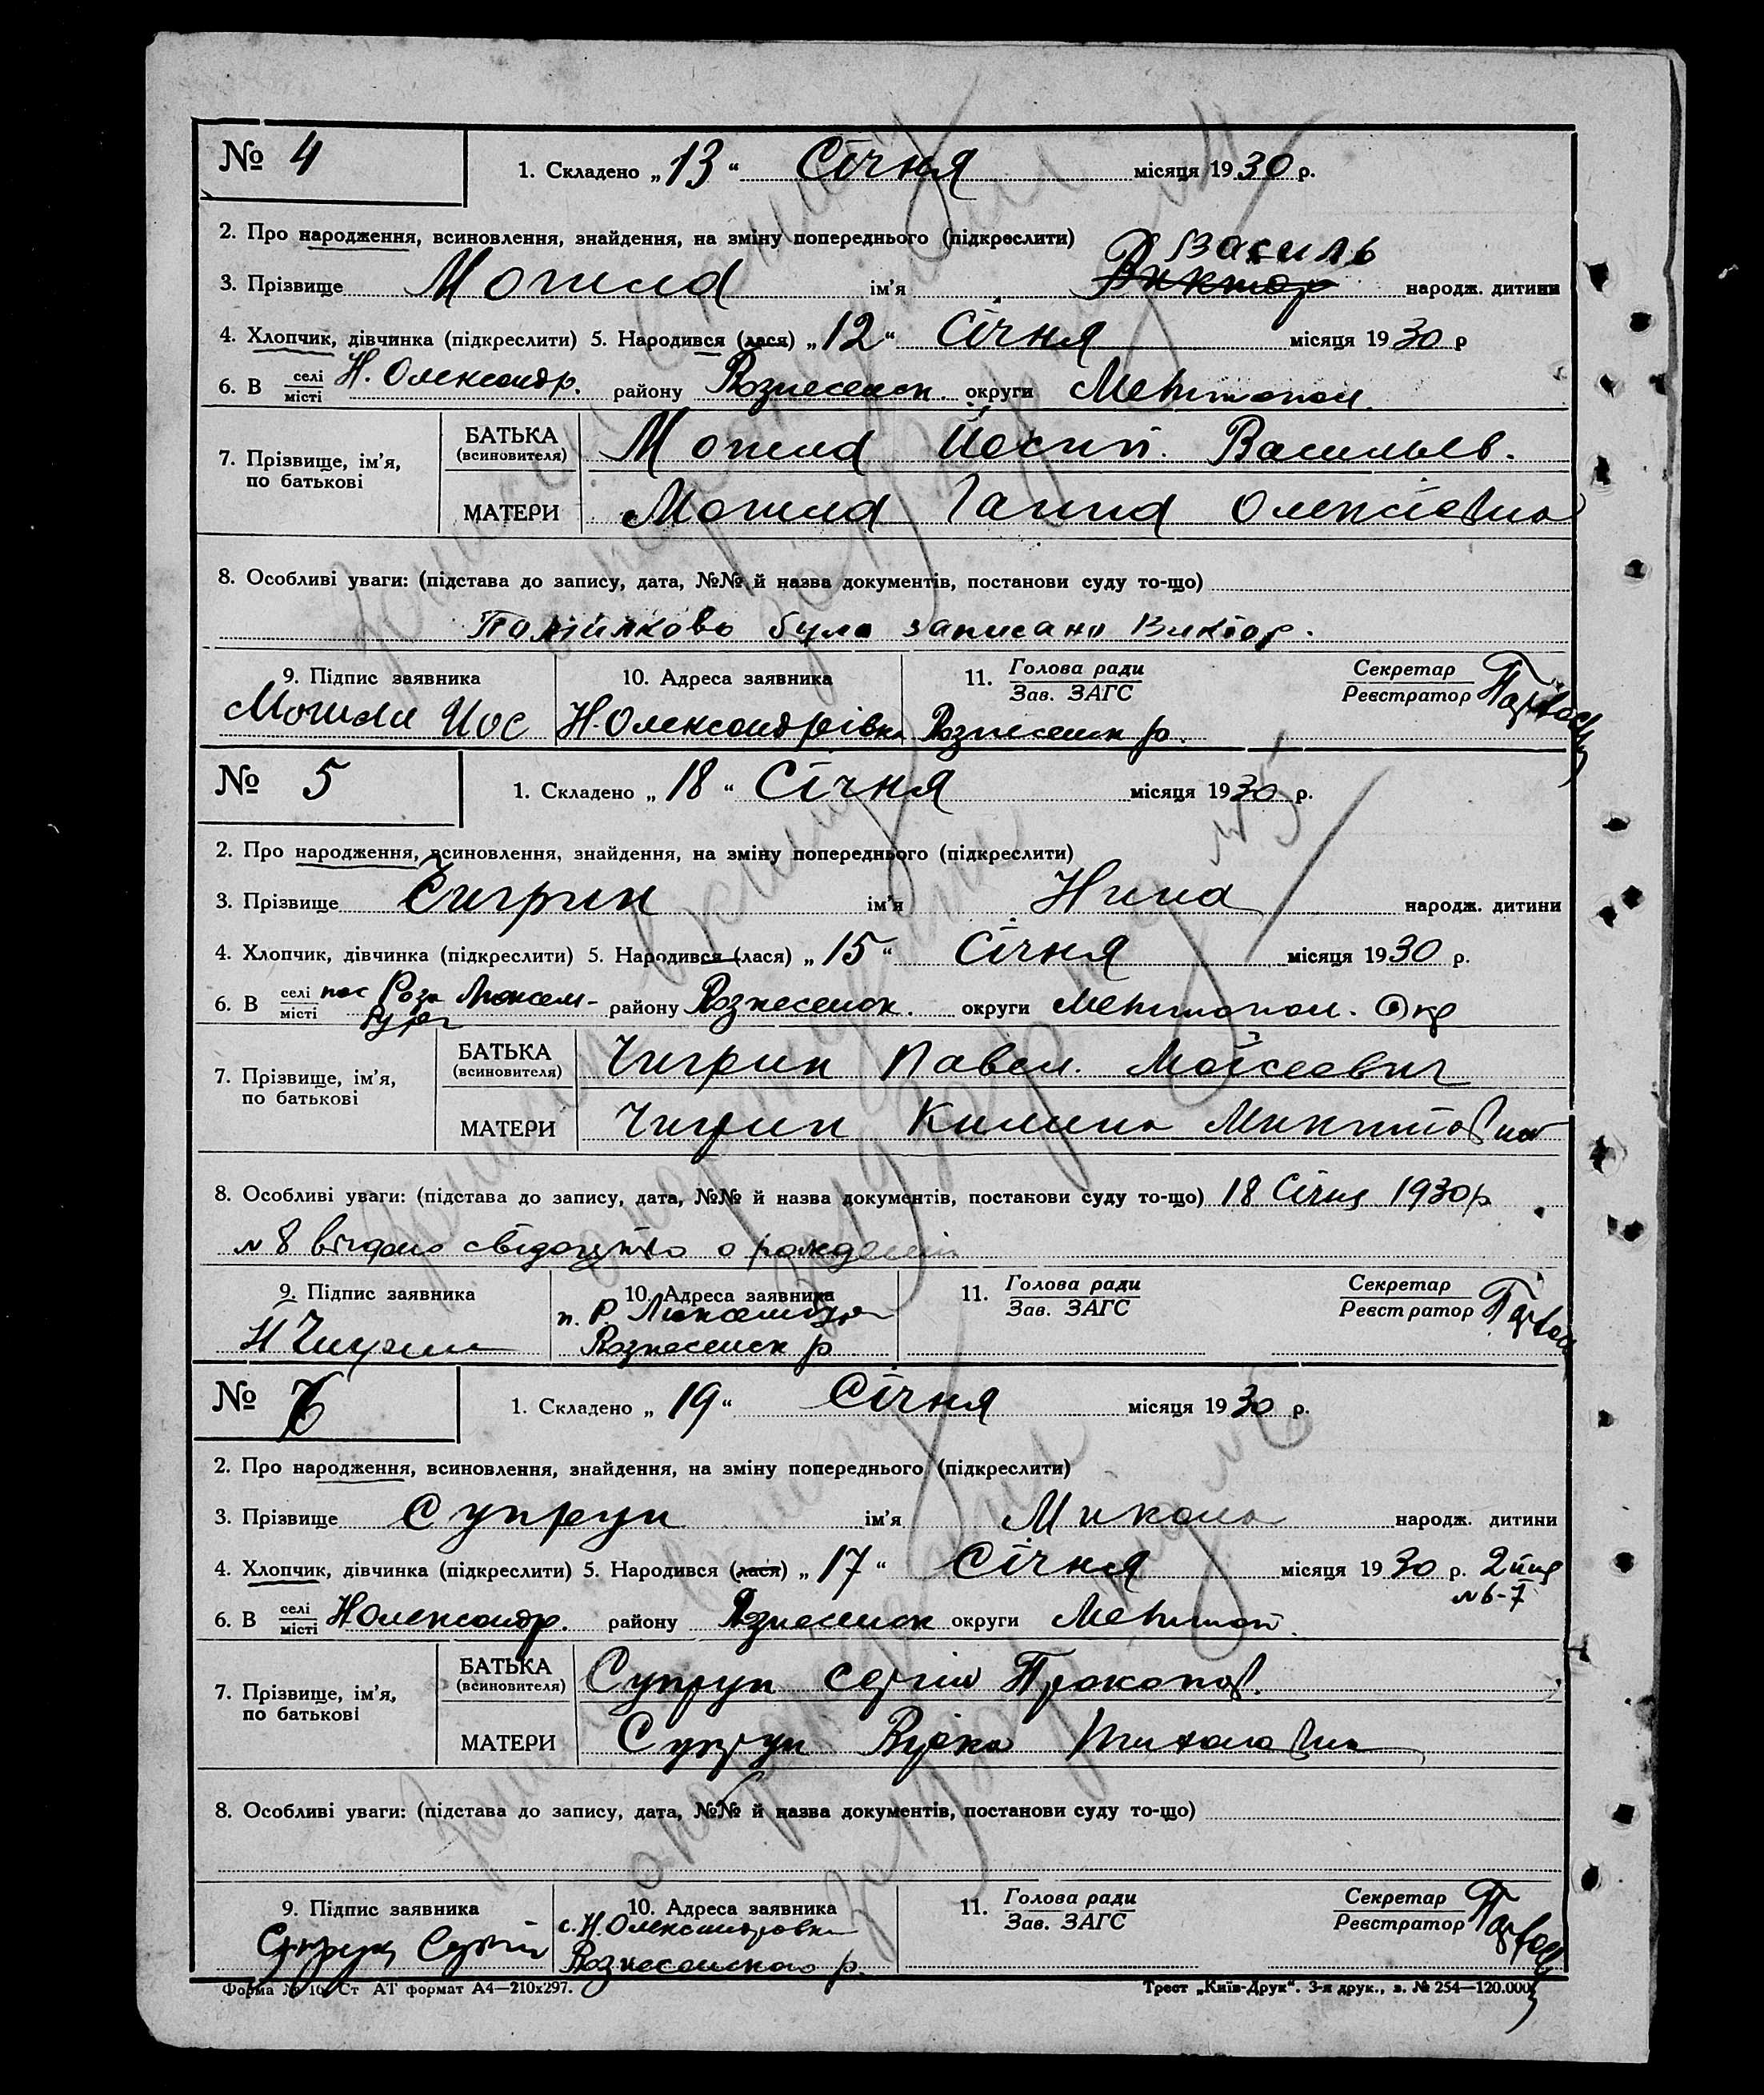 № 4 1. Складено „13“ Січня місяця 1930 р.
2. Про народження, всиновлення, знайдення, на зміну попереднього (підкреслити)
Василь
3. Прізвище Могила ім'я Виктор народж. дитини
4. Хлопчик, дівчинка (підкреслити) 5. Народився (лася) „12“ Січня місяця 1930 р
6. В селі місті Н. Олександр. району Вознесенск. округи Мелітопол.
7. Прізвище, ім'я, по батькові БАТЬКА (всиновителя) Могила Йосип. Васильев.
МАТЕРИ Могила Ганна Олексіевна
8. Особливі уваги: (підстава до запису, дата, №№ й назва документів, постанови суду то-що)
Помілково було записано Виктор.
9. Підпис заявника 10. Адреса заявника 11. Голова ради Зав. ЗАГС Секретар Реєстратор
Могила Иос Н-Олександрівка Вознесенск р.
№ 5 1. Складено „18“ Січня місяця 1930 р.
2. Про народження, всиновлення, знайдення, на зміну попереднього (підкреслити)
3. Прізвище Чигрин ім'я Нина народж. дитини
4. Хлопчик, дівчинка (підкреслити) 5. Народився (лася) „15“ Січня місяця 1930 р.
6. В селі місті пос Роза Люксем- району Вознесенск. округи Мелітопол. Окр
бург
7. Прізвище, ім'я, по батькові БАТЬКА (всиновителя) Чигрин Павел. Моісеевич
МАТЕРИ Чигрин Килина Микитовна
8. Особливі уваги: (підстава до запису, дата, №№ й назва документів, постанови суду то-що) 18 Січня 1930 р
№ 8 видано свідоцтво о рождении
9. Підпис заявника 10. Адреса заявника 11. Голова ради Зав. ЗАГС Секретар Реєстратор
п. Р. Люксембург
Чигрин Вознесенск р
№ 6 1. Складено „19“ Січня місяця 1930 р.
2. Про народження, всиновлення, знайдення, на зміну попереднього (підкреслити)
3. Прізвище Супрун ім'я Микола народж. дитини
4. Хлопчик, дівчинка (підкреслити) 5. Народився (лася) „17“ Січня місяця 1930 р.
№ 6-7
6. В селі місті Н Олександр. району Вознесенск округи Мелітоп.
7. Прізвище, ім'я, по батькові БАТЬКА (всиновителя) Супрун Сергій Прокопов.
МАТЕРИ Супрун
8. Особливі уваги: (підстава до запису, дата, №№ й назва документів, постанови суду то-що)
9. Підпис заявника 10. Адреса заявника 11. Голова ради Зав. ЗАГС Секретар Реєстратор
с. Н. Олександровка
Супрун Сергій Вознесенского р.
Форма № 10. Ст АТ формат А4—210х297. Трест „Київ-Друк“. 3-я друк., з. № 254—120.000